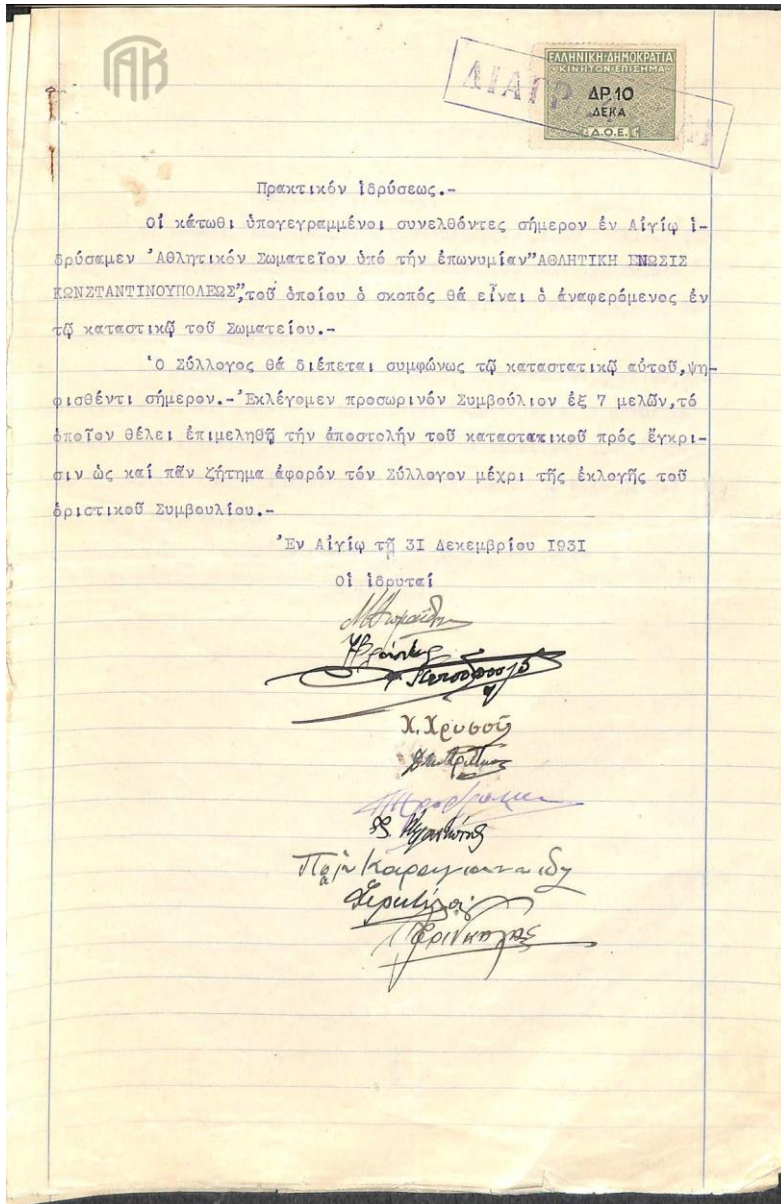 ΕΛΛΗΝΙΚΗ ΔΗΜΟΚΡΑΤΙΑ
ΚΙΝΗΤΟΝ ΕΠΙΣΗΜΑ
ΔΡ.10
ΔΕΚΑ
Δ.Ο.Ε.
Πρακτικόν ἱδρύσεως.-
Οἱ κάτωθι ὑπογεγραμμένοι συνελθόντες σήμερον ἐν Αἰγίῳ ἱ-
δρύσαμεν Ἀθλητικόν Σωματεῖον ὑπό τήν ἐπωνυμίαν"ΑΘΛΗΤΙΚΗ ΕΝΩΣΙΣ
ΚΩΝΣΤΑΝΤΙΝΟΥΠΟΛΕΩΣ",τοῦ ὁποίου ὁ σκοπός θά εἶναι ὁ ἀναφερόμενος ἐν
τῷ καταστικῷ τοῦ Σωματείου.-
Ὁ Σύλλογος θά διέπεται συμφώνως τῷ καταστατικῷ αὐτοῦ,ψη-
φισθέντι σήμερον.-Ἐκλέγομεν προσωρινόν Συμβούλιον ἐξ 7 μελῶν,τό
ὁποῖον θέλει ἐπιμεληθῇ τήν ἀποστολήν τοῦ καταστατικοῦ πρός ἔγκρι-
σιν ὡς καί πᾶν ζήτημα ἀφορόν τόν Σύλλογον μέχρι τῆς ἐκλογῆς τοῦ
ὁριστικοῦ Συμβουλίου.-
Ἐν Αἰγίῳ τῇ 3I Δεκεμβρίου I93I
Οἱ ἱδρυταί
Χ. Χρυσοῦ